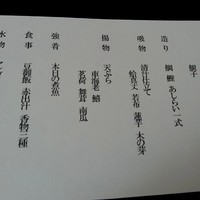 鯛子
造り
鯛 鰹 あしらい一式
吸物
清汁仕立て
蛤真丈 若布 蓮芋 木の芽
揚物
天ぷら
車海老 鱚
茗荷 舞茸 南瓜
強肴
本日の煮魚
食事
豆御飯 赤出汁 香物二種
水物